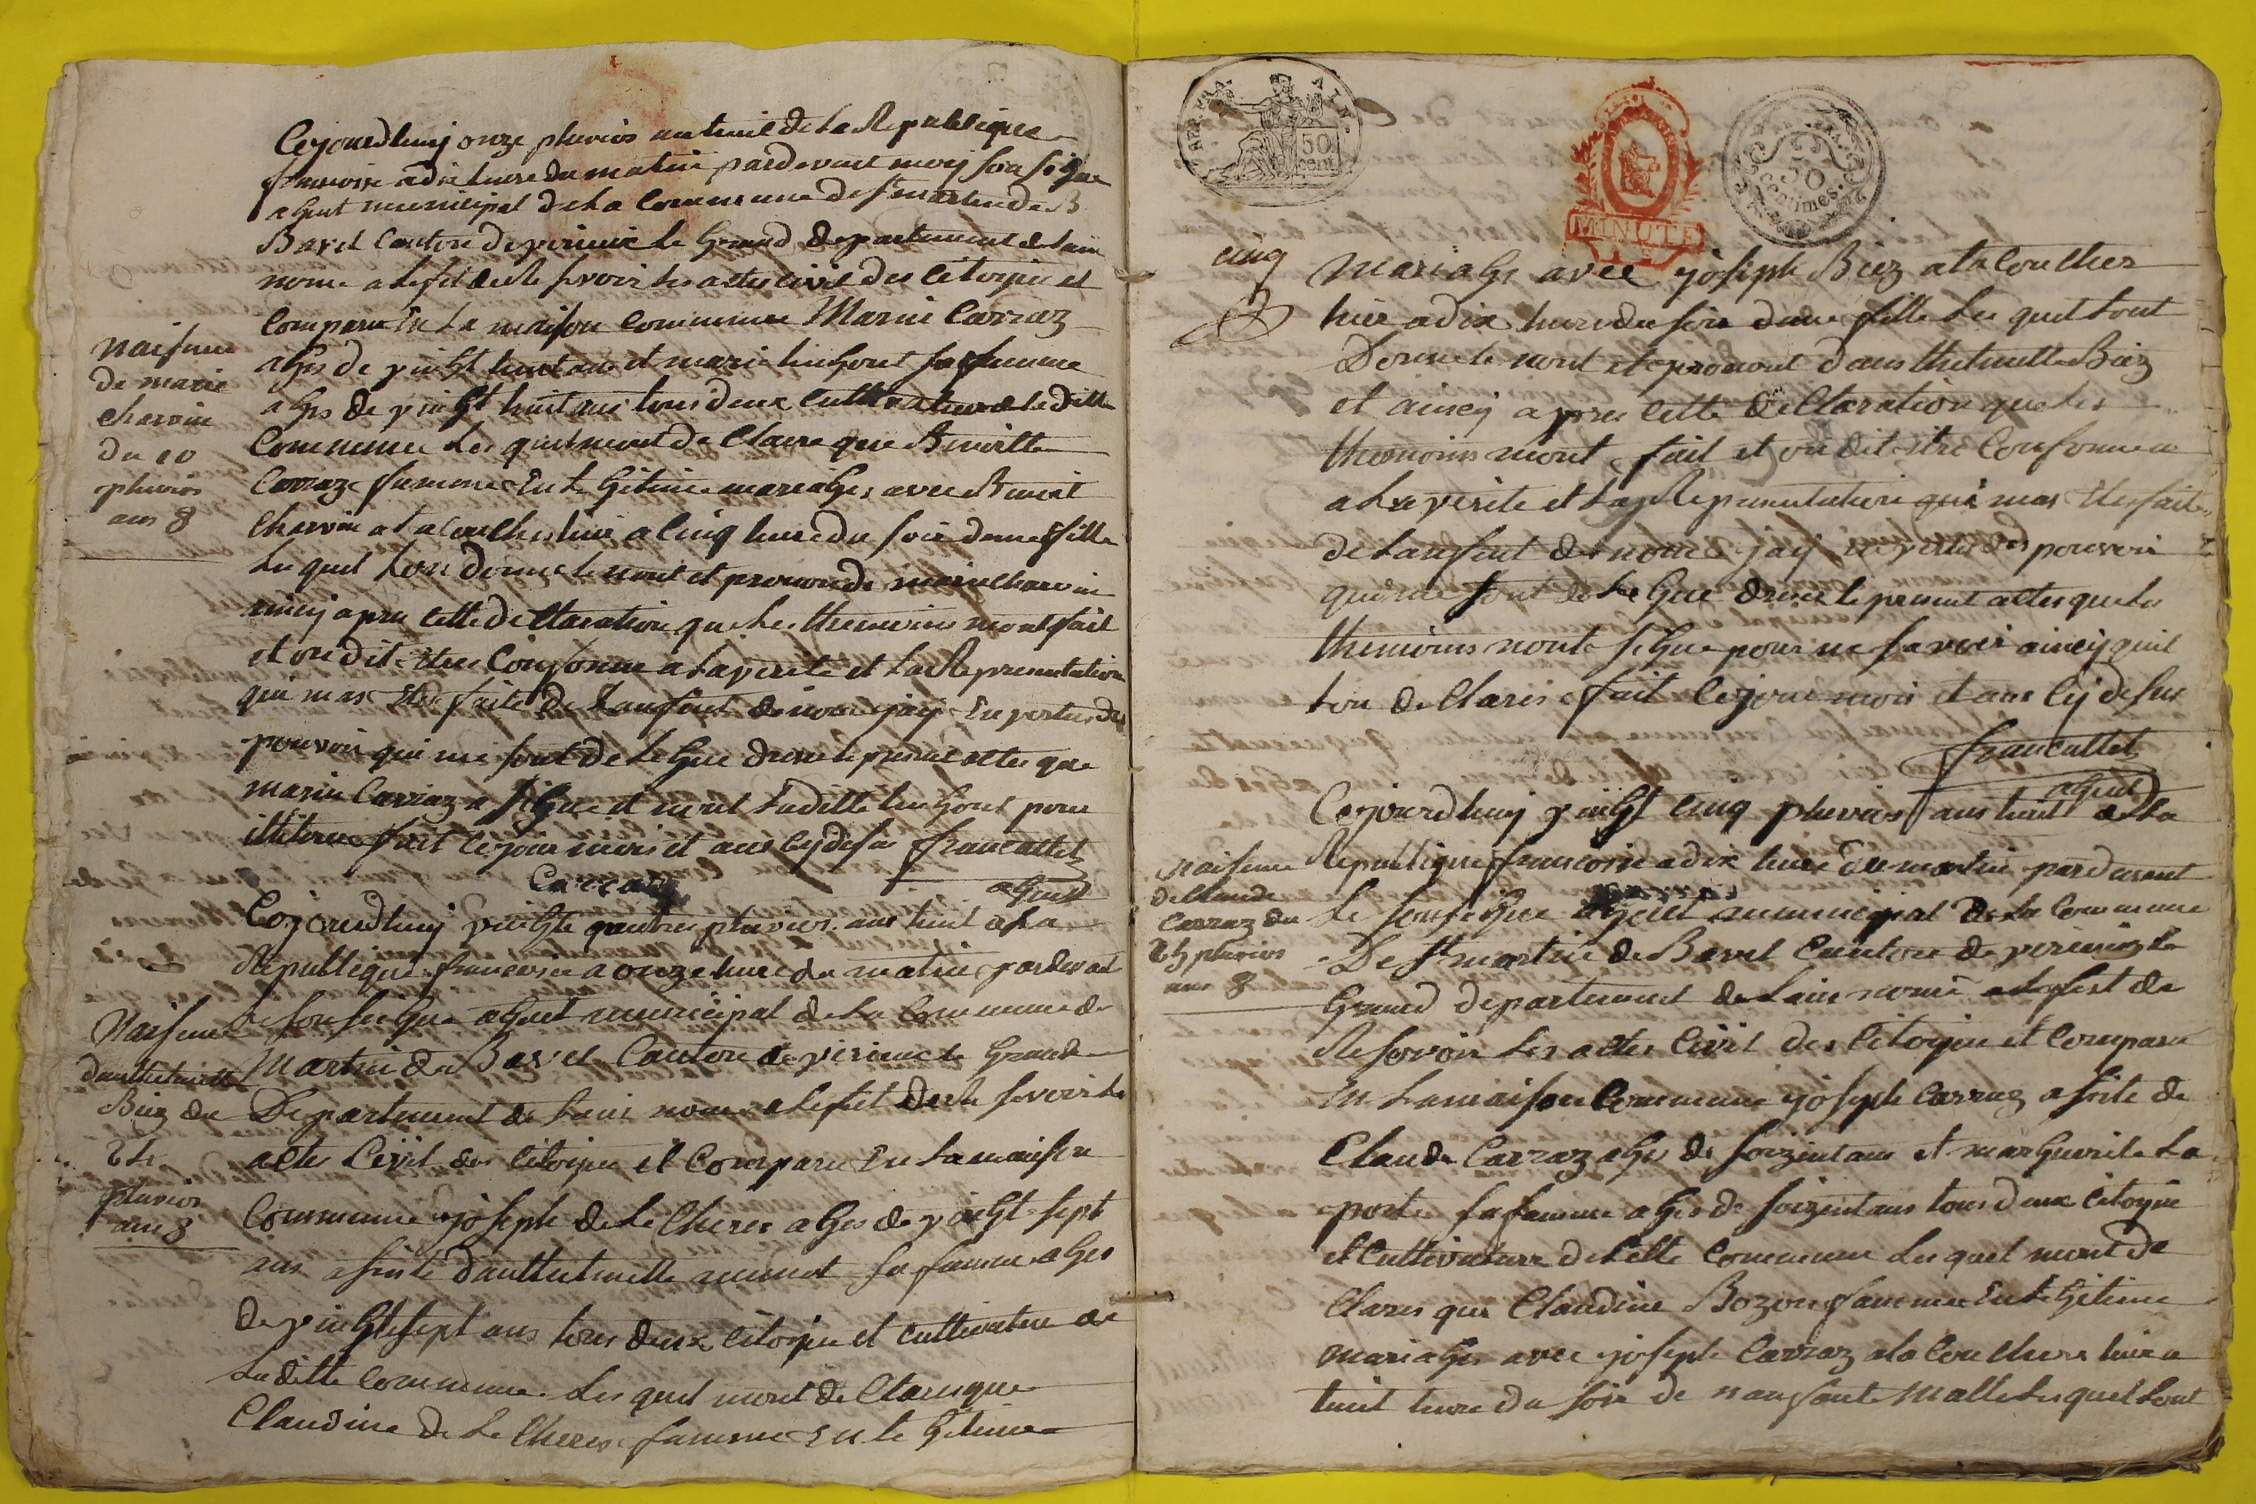 Cejourdhuij onze pluvios ant huit de la Republique
francoise a dix heure du matin pardevant moij sousigne
agent municipal de la Commune de st martin de B
Bavel Canton de virieux le Grand departement de lain
nome a lefet de Re servoir les actes civil des citoyien et
Comparu En la maison commune Marin Carraz
ages de vinGt huit ans et marie linGout sa famme
ages de vinGt huit ans tous deux Cultivateur de laditte
Commune les quel mont de Clare que Benoitte
Carraz famme En leGitime mariages avec Benoit
Charvin at acouches hier a Cinq heure du soir dune fille
les quel lon donne le nont et pronom de marie Charvin
aincij apres cette de Claration que les themoins mont fait
et on dit etre Conforme a la verite et la Representation
qui mas Ete faite de Lanfant de nome jaij En vertus des
pouvoir qui me sont de leGue dresse le present actes que
marin Carraz a siGne et nont laditte linGout pour
illiterre fait le jour mois et ans cij desus francallet
Carraz agent
naisance
de marie
charvin
du 10
pluvios
ans 8
Cejourdhuij vinGte quatres pluvios ans huit de la
Republique francoise a onze heure du matin pardevant
le sousiGne aGent municipal de la Commune de
Martin de Bavel Canton de virieux le Grand
Departement de lain nome a lefet de Re servoir les
actes Civil des citoyien et Comparu En la maison
Commune joseph de le Cheres ages de vinGt sept
ans assiste danthelmette munet sa famme ages
de vinGt sept ans tous deux citoyien et cultivateur de
laditte Commune les quel mont de Clare que
Claudine de le Cheres famme En le Gitime
Naisance
danthelmette
Biez du
24
pluvios
ans 8
REP. FRA.
50
cent.
MINUTE
50
centimes.
cinq
mariaGe avec joseph Biez at a Couches
hier a dix heure du soir dune fille les quel lont
Donne le nont et pronont danthelmette Biez
et aincij apres cette de Claration que les
themoins mont fait et on dit etre Conforme
a la verite et la Representation qui mas Ete faite
de lanfant de nome jaij en vertu des pouvoir
qui me sont de le Gue dresse le present actes que les
themoins nonte siGne pour ne savoir aincij quil
lon de Clares fait le jour mois et ans cij desus
francallet
agent
Cejourdhuij vinGt cinq pluvios ans huit de la
Republique francoise a dix heure du matin pardevant
le sousiGne aGent municipal de la Commune
De st martin de Bavel Canton de virieux le
Grand departement de lain nome a lefest de
Re servoir les actes Civil des Citoyien et Comparu
En la maison Commune joseph Carraz assiste de
Claude Carraz ages de soizent ans et marGuerite la
porte sa famme ages de soizent ans tous deux Citoyien
et Cultivateur de cette Commune les quel mont de
Clares que Claudine Bozon famme En leGitime
mariages avec joseph Carraz at a Couches hier a
huit heure du soir de nanfant Malle les quel lont
naisance
de Claude
Carraz du
25 pluvios
ans 8